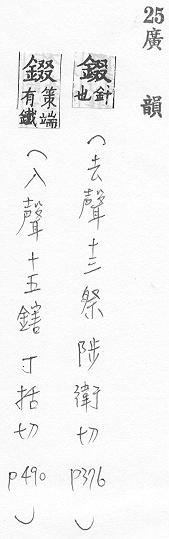 25 廣韻
錣 針也 (去聲十三祭 陟衛切 p376)
錣 策端有鐵 (入聲十五鎋 丁括切 p490)